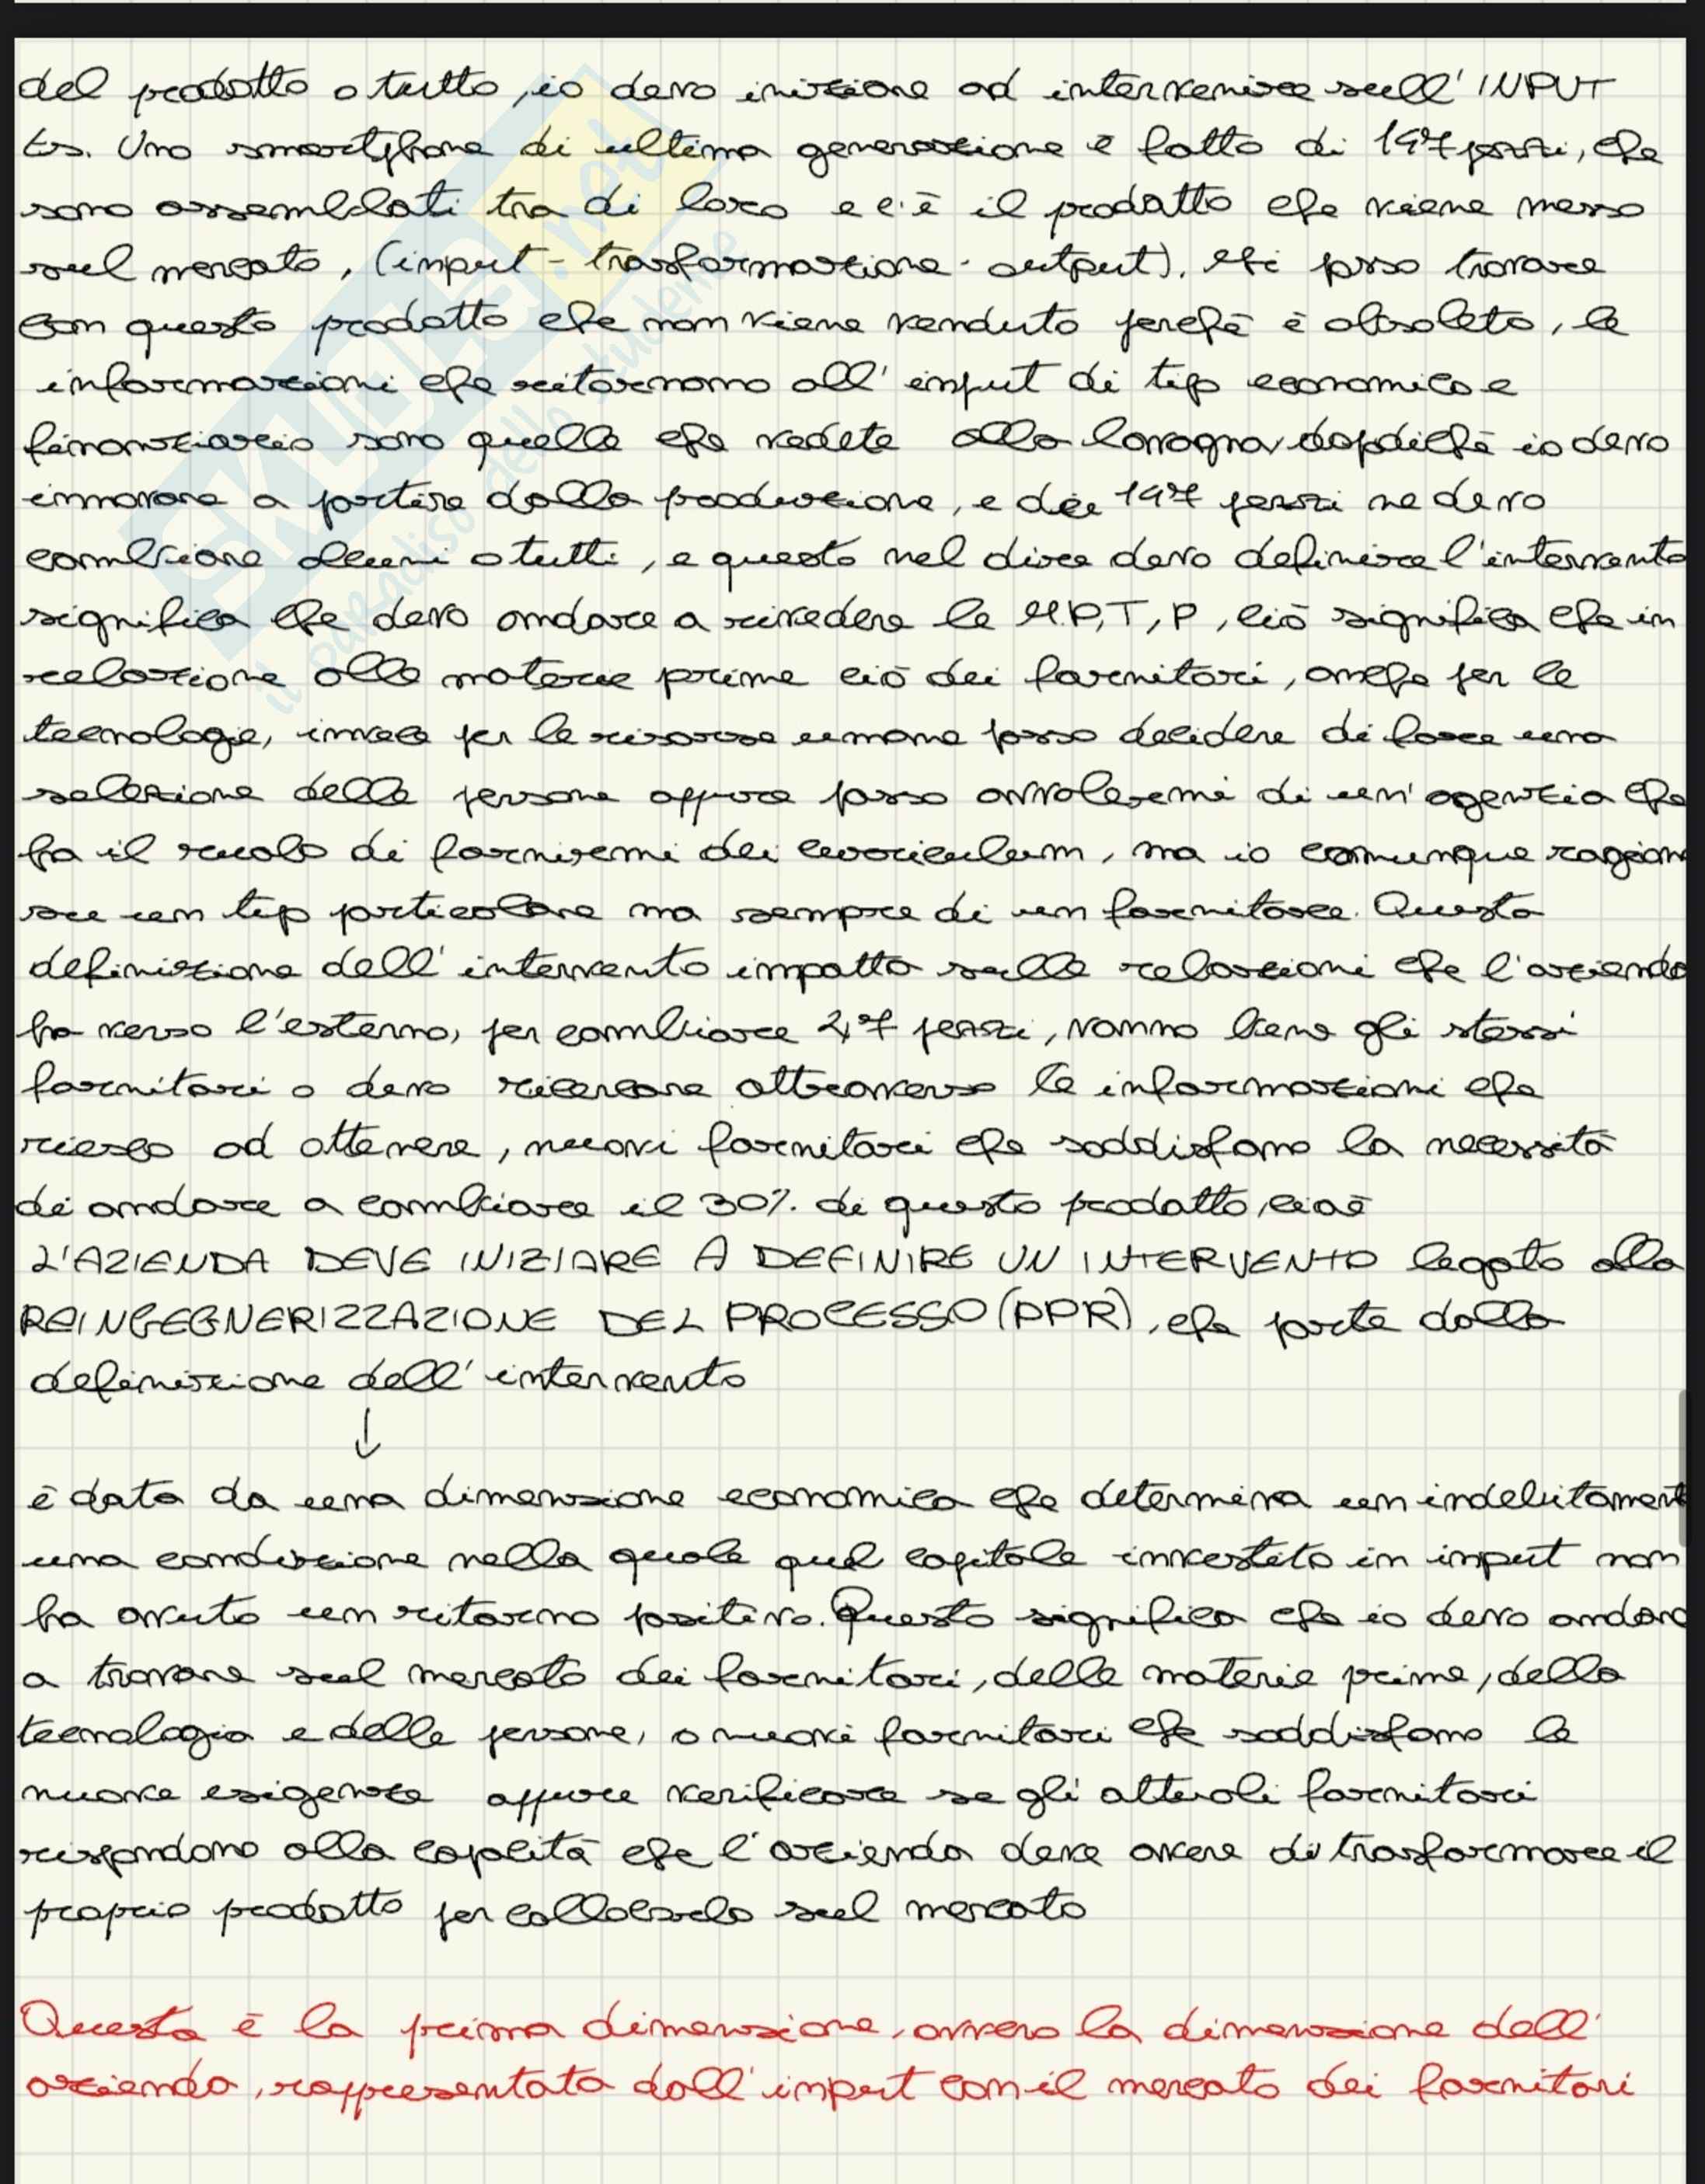 del prodotto o tutto, io devo iniziare ad intervenire sull' INPUT
Es. Uno smartphone di ultima generazione è fatto di 197 pezzi, che
sono assemblati tra di loro e c'è il prodotto che viene messo
sul mercato, (imput - trasformazione - output). Mi posso trovare
con questo prodotto che non viene venduto perché è obsoleto, le
informazioni che ritornano all' input di tipo economico e
finanziario sono quelle che vedete alla lavagna dopdiché io devo
innovare a partire dalla produzione, e dei 197 pezzi ne devo
cambiare alcuni o tutti, e questo nel dire devo definire l'intervento
significa che devo andare a rivedere le M.P, T, P, ciò significa che in
relazione alle materie prime ciò dei fornitori, anche per le
tecnologie, invece per le risorse umane posso decidere di fare una
selezione delle persone oppure posso avvalermi di un' agenzia che
ha il ruolo di fornirmi dei curriculum, ma io comunque ragion
su un tip particolare ma sempre di un fornitore. Questa
definizione dell' intervento impatta sulle relazioni che l'azienda
ha verso l'esterno, per cambiare pezzi, vanno bene gli stessi
fornitori o devo ricercare attraverso le informazioni che
riesco ad ottenere, nuovi fornitori che soddisfano la necessità
di andare a cambiare il 30% di questo prodotto, cioè
L'AZIENDA DEVE INIZIARE A DEFINIRE UN INTERVENTO legato alla
REINGEGNERIZZAZIONE DEL PROCESSO (PPR), che parte dalla
definizione dell' intervento
↓
è data da una dimensione economica che determina un indebitament
una condizione nella quale quel capitale investito in imput non
ha avuto un ritorno positivo. Questo significa che io devo andare
a trovare sul mercato dei fornitori, delle materie prime, della
tecnologia e delle persone, o nuovi fornitori che soddisfano le
nuove esigenze oppure verificare se gli attuali fornitori
rispondono alla capacità che l'azienda deve avere di trasformare il
proprio prodotto per collocarlo sul mercato
Questa è la prima dimensione, ovvero la dimensione dell'
azienda, rappresentata dall' imput con il mercato dei fornitori
SKUOLA.net
il paradiso dello studente